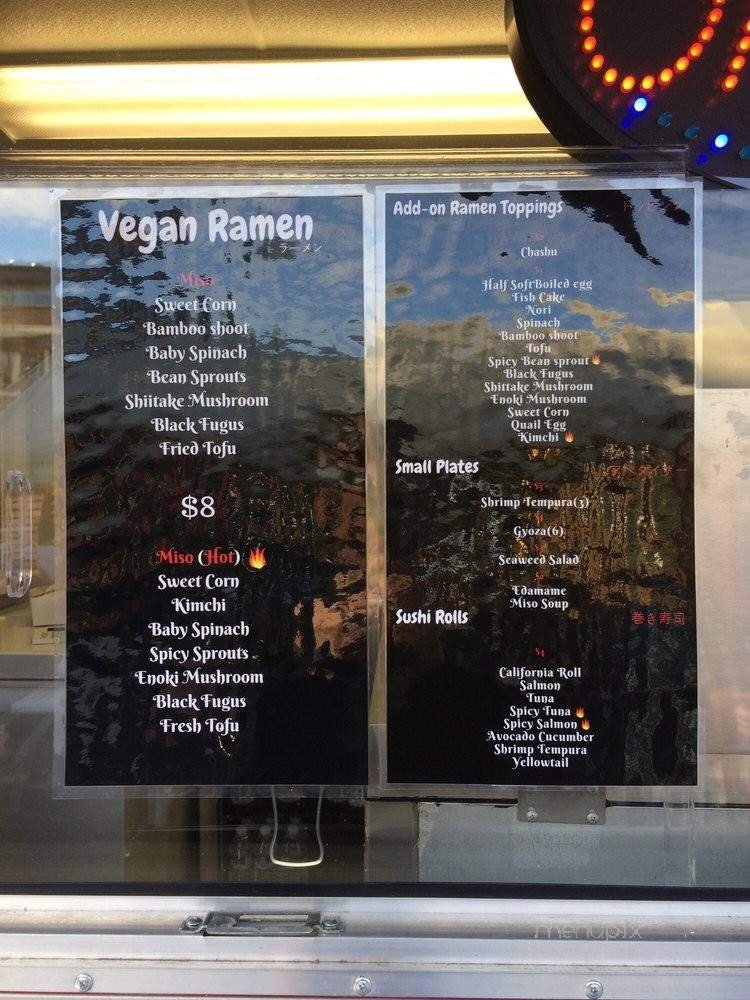 Vegan Ramen
ラーメン
Miso
Sweet Corn
Bamboo shoot
Baby Spinach
Bean Sprouts
Shiitake Mushroom
Black Fugus
Fried Tofu
$8
Miso (Hot) 🔥
Sweet Corn
Kimchi
Baby Spinach
Spicy Sprouts
Enoki Mushroom
Black Fugus
Fresh Tofu
Add-on Ramen Toppings
トッピング
Chashu
$1
Half SoftBoiled egg
Fish Cake
Nori
Spinach
Bamboo shoot
Tofu
Spicy Bean sprout 🔥
Black Fugus
Shittake Mushroom
Enoki Mushroom
Sweet Corn
Quail Egg
Kimchi 🔥
Small Plates
Shrimp Tempura(3)
Gyoza(6)
Seaweed Salad
Edamame
Miso Soup
Sushi Rolls
巻き寿司
$4
California Roll
Salmon
Tuna
Spicy Tuna 🔥
Spicy Salmon 🔥
Avocado Cucumber
Shrimp Tempura
Yellowtail
menupix